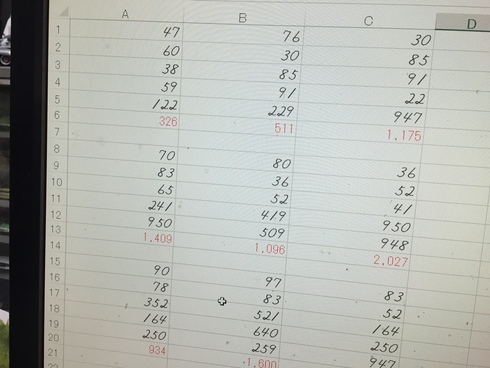 A B C D
1 47 76 30
2 60 30 85
3 38 85 91
4 59 91 22
5 122 229 947
6 326 511 1,175
7
8 70 80 36
9 83 36 52
10 65 52 41
11 241 419 950
12 950 509 948
13 1,409 1,096 2,027
14
15 90 97 83
16 78 83 52
17 352 521 164
18 164 640 250
19 250 259 947
20 934 1,600
21